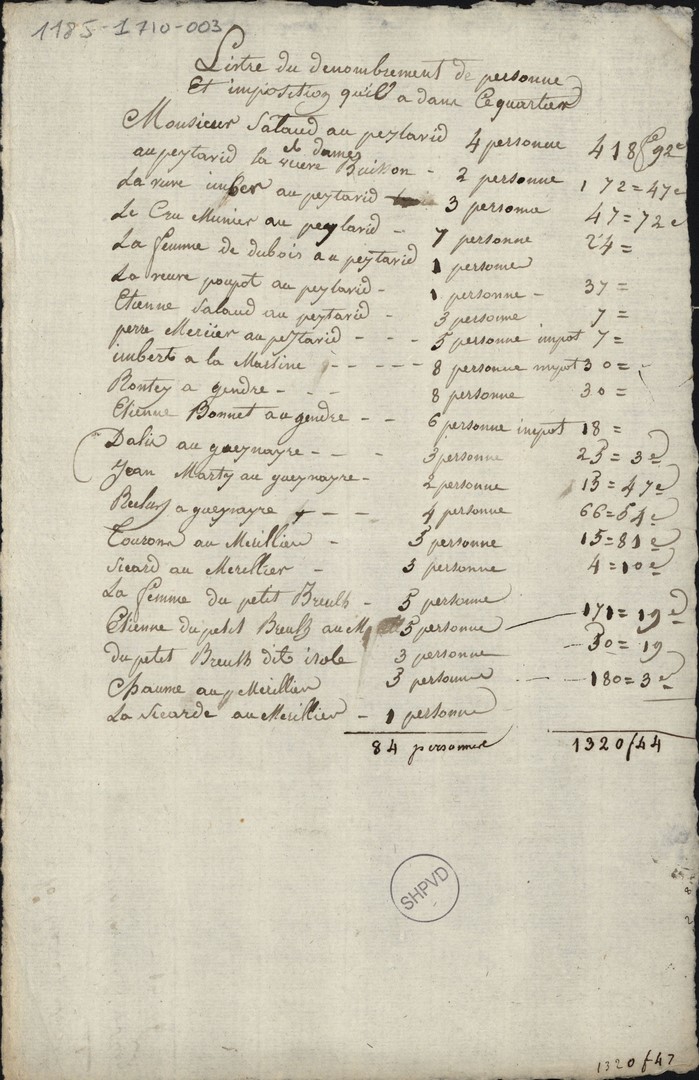 1185-1710-003
Listre du denombrement de personne
Et imposition quil a dans Cequartier
Monsieur Salaud au peylarid 4 personne 418 92
au peylarid la veuve et dames Buisson - 2 personne 172=47e
La veuve imber au peylarid 3 personne 47=72e
Le Cru Munier au peylarid - 7 personne 24=
La femme de dubois au peylarid 1 personne
La veuve poupot au peylarid - 1 personne - 37=
Etienne Salaud au peylarid - 3 personne 7=
perre Meriier au peylarid - - - 5 personne impot 7=
imbert a la Martine - - - - - 8 personne impot 30=
Rontey a gendre - - - 8 personne 30=
Etienne Bonnet au gendre - - 6 personne impot 18=
Dalix au gueynayre - - - 3 personne 25=3e
Jean Marty au gueynayre - 2 personne 15=47e
a gueynayre - - 4 personne 66=54e
Tourom au Merillier - 5 personne 15=81e
Sicard au Merillier - 3 personne 4=10e
La femme du petit Breulh - 5 personne
Etienne du petit Breulh au 5 personne 171=19e
du petit Breulh dit isole 3 personne 50=19
Chaume au Merillier 3 personne - - 180=3e
La Sicarde au Merillier - 1 personne
84 personne 1320f44
SHPVD
1320f47